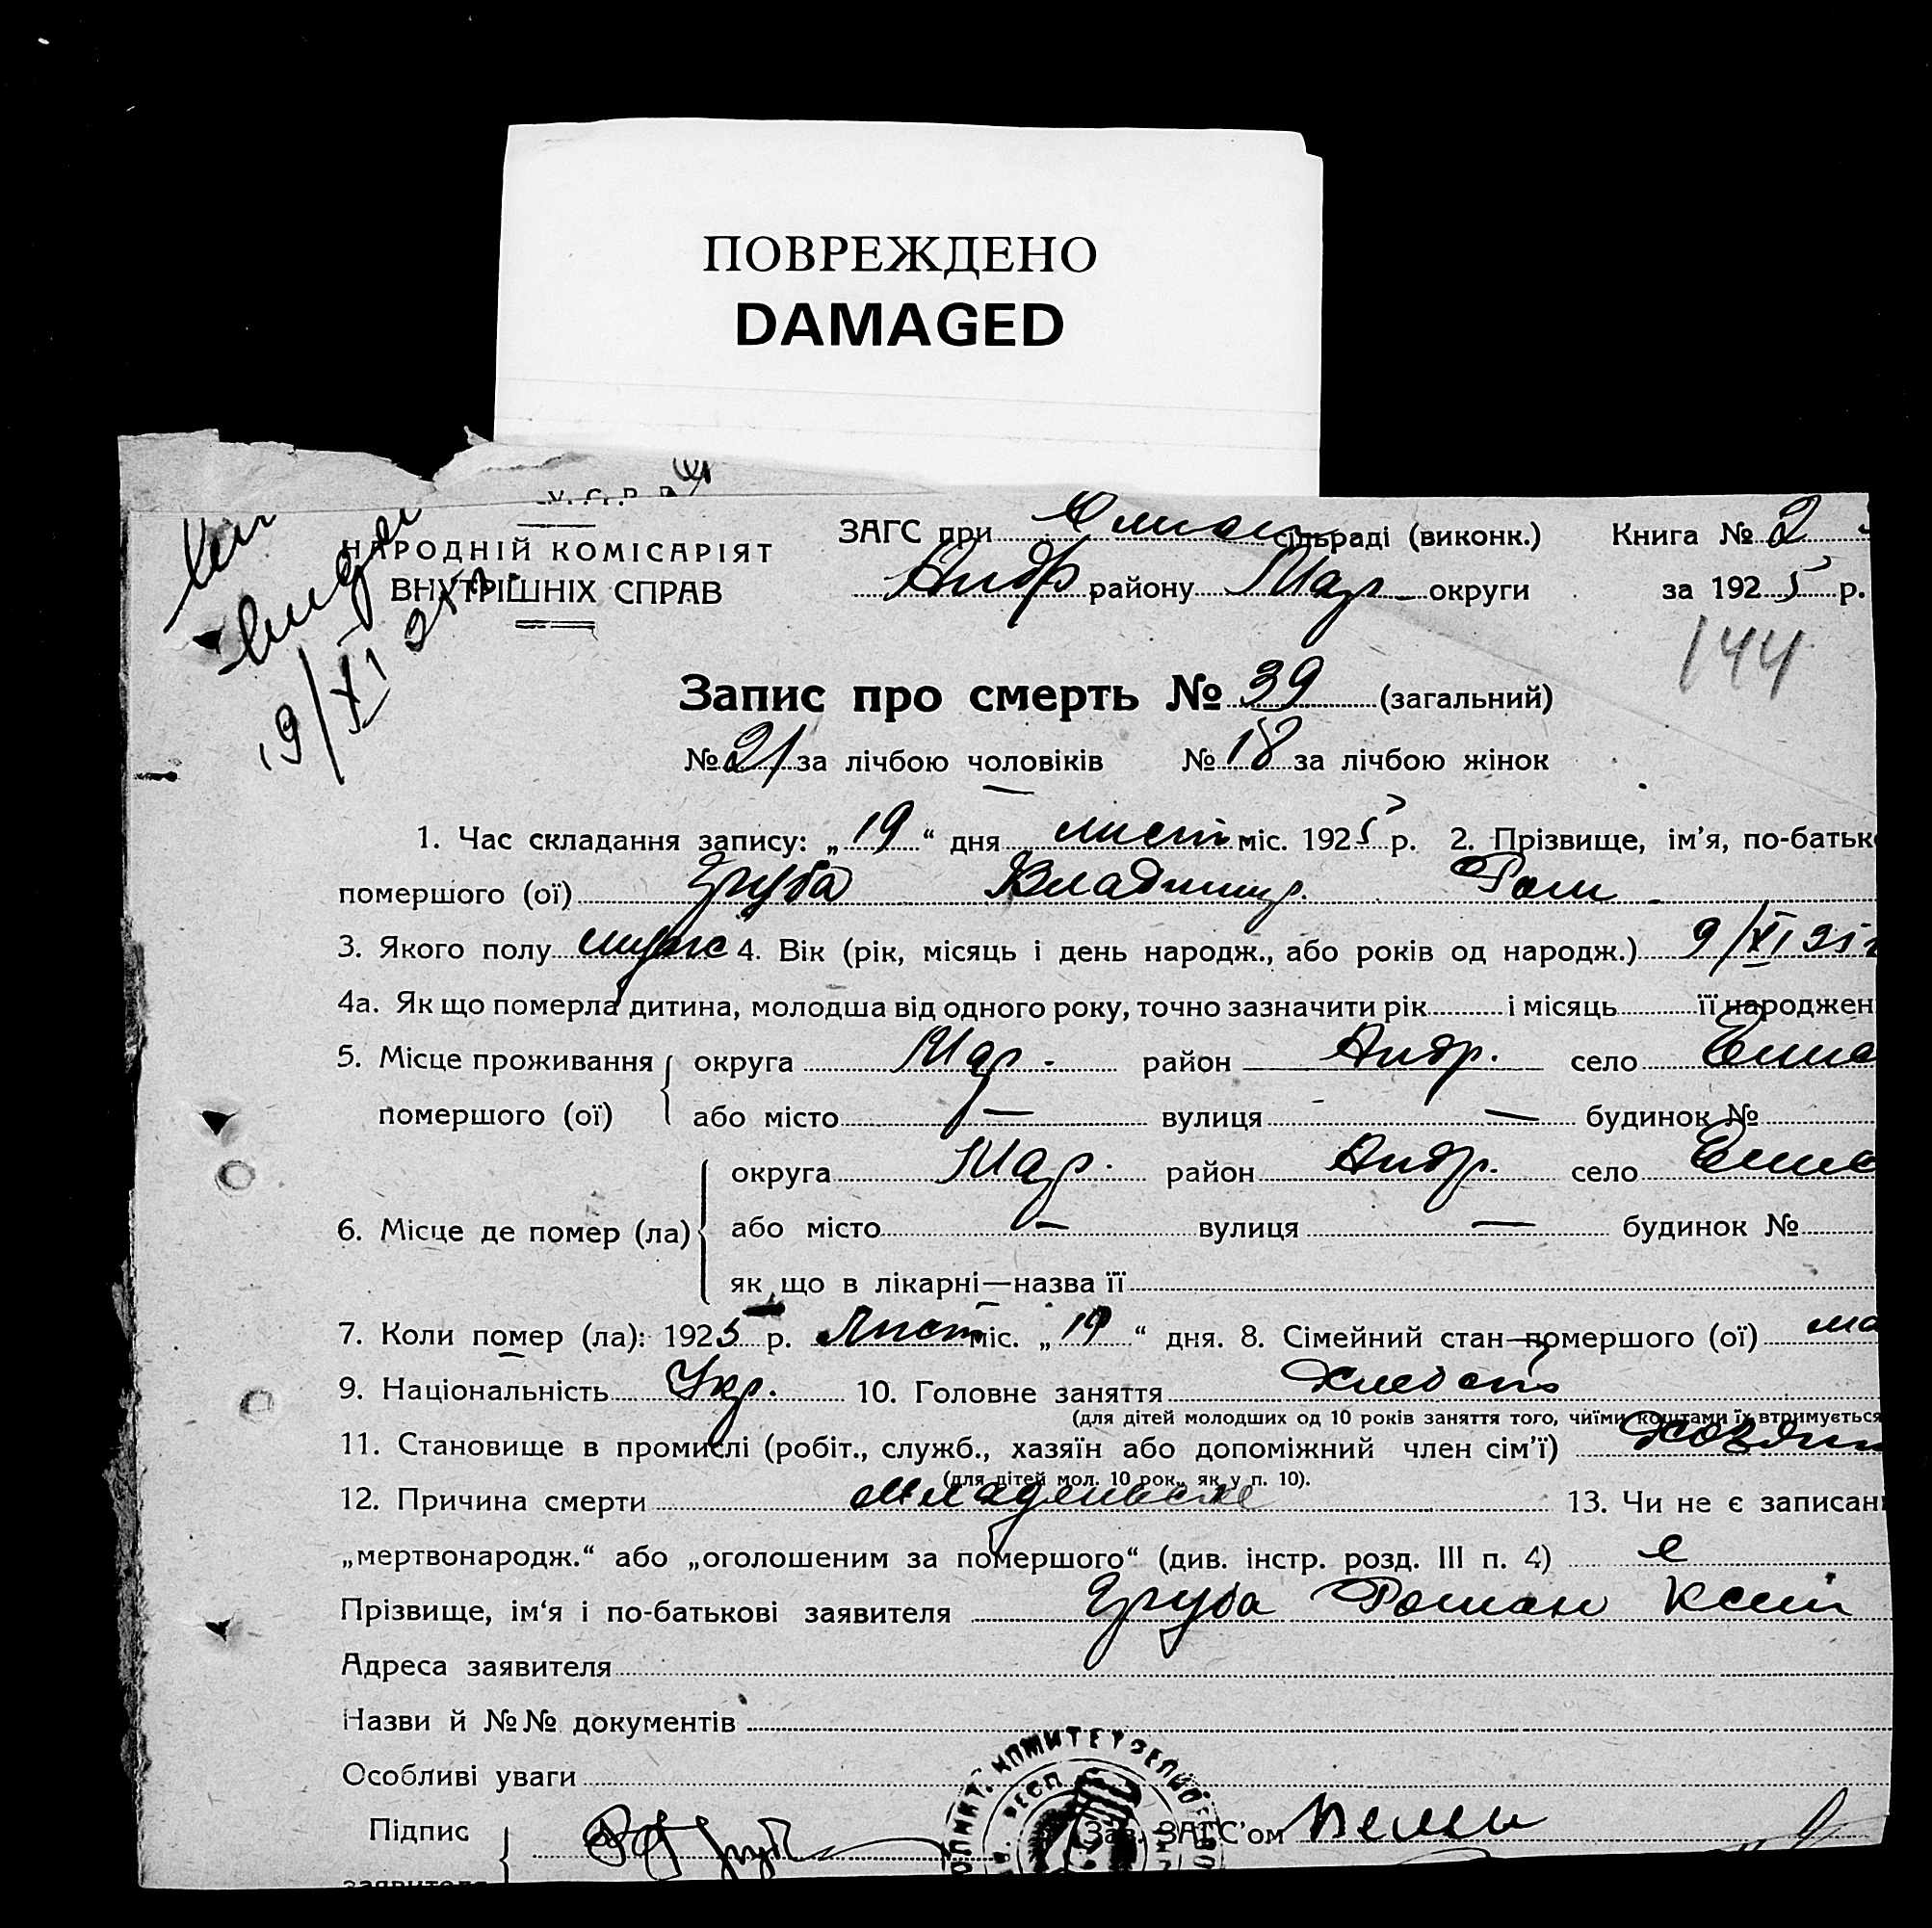 ПОВРЕЖДЕНО
DAMAGED
У. С. Р. Р.
НАРОДНІЙ КОМІСАРІЯТ
ВНУТРІШНІХ СПРАВ
ЗАГС при сільраді (виконк.) Книга № 2
Андр району Мар округи за 1925 р.
19/XI 25 г.
144
Запис про смерть № 39 (загальний)
№ 21 за лічбою чоловіків № 18 за лічбою жінок
1. Час складання запису: „19“ дня лист міс. 1925 р. 2. Прізвище, ім'я, по-батьк
помершого (ої) Груба Владимир. Ром
3. Якого полу мужс 4. Вік (рік, місяць і день народж., або років од народж.) 9/XI 25 г
4а. Як що померла дитина, молодша від одного року, точно зазначити рік і місяць її народжен
5. Місце проживання округа Мар. район Андр. село
помершого (ої) або місто — вулиця — будинок №
округа Мар. район Андр. село
6. Місце де помер (ла) або місто — вулиця — будинок №
як що в лікарні—назва її
7. Коли помер (ла): 1925 р. Лист міс. „19“ дня. 8. Сімейний стан помершого (ої)
9. Національність Укр. 10. Головне заняття Хлебоп
(для дітей молодших од 10 років заняття того, чиїми коштами їх втримується
11. Становище в промислі (робіт., служб., хазяїн або допоміжний член сім'ї) Хозяин
(для дітей мол. 10 рок., як у п. 10).
12. Причина смерти 13. Чи не є записан
„мертвонародж.“ або „оголошеним за помершого“ (див. інстр. розд. III п. 4)
Прізвище, ім'я і по-батькові заявителя Груба Роман
Адреса заявителя
Назви й №№ документів
Особливі уваги
Підпис Зав. ЗАГС'ом
заявителя